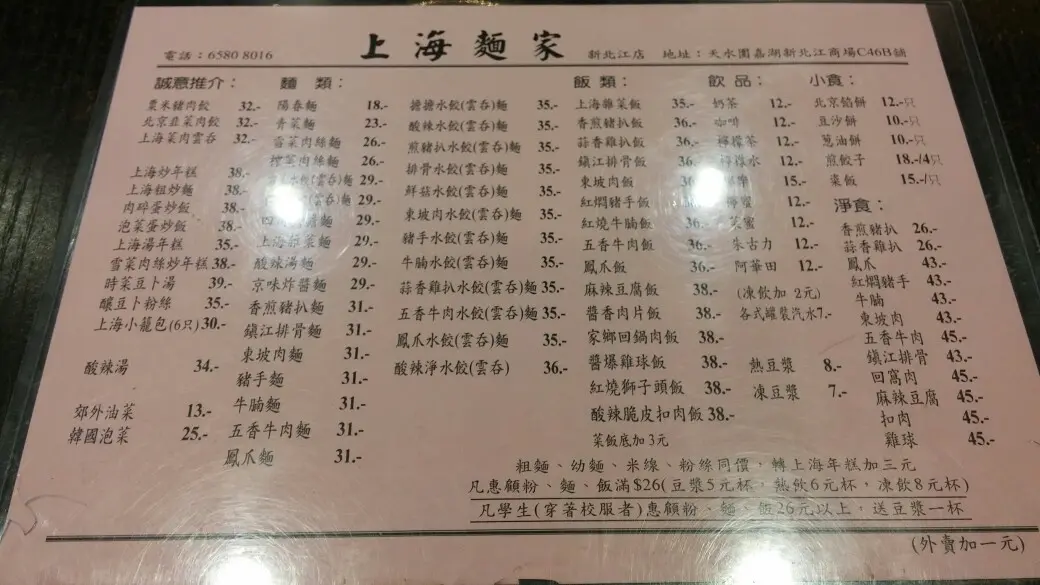 電話：6580 8016
上海麵家
新北江店 地址：天水圍嘉湖新北江商場C46B舖
誠意推介：
粟米豬肉餃 32.-
北京韭菜肉餃 32.-
上海菜肉雲吞 32.-
上海炒年糕 38.-
上海粗炒麵 38.-
肉碎蛋炒飯 38.-
泡菜蛋炒飯 38.-
上海湯年糕 35.-
雪菜肉絲炒年糕 38.-
時菜豆卜湯 39.-
釀豆卜粉絲 35.-
上海小籠包(6只) 30.-
酸辣湯 34.-
郊外油菜 13.-
韓國泡菜 25.-
麵類：
陽春麵 18.-
青菜麵 23.-
雪菜肉絲麵 26.-
榨菜肉絲麵 26.-
水餃(雲吞)麵 29.-
(雲吞)麵 29.-
四 麵 29.-
上海 菜麵 29.-
酸辣湯麵 29.-
京味炸醬麵 29.-
香煎豬扒麵 31.-
鎮江排骨麵 31.-
東坡肉麵 31.-
豬手麵 31.-
牛腩麵 31.-
五香牛肉麵 31.-
鳳爪麵 31.-
擔擔水餃(雲吞)麵 35.-
酸辣水餃(雲吞)麵 35.-
煎豬扒水餃(雲吞)麵 35.-
排骨水餃(雲吞)麵 35.-
鮮菇水餃(雲吞)麵 35.-
東坡肉水餃(雲吞)麵 35.-
豬手水餃(雲吞)麵 35.-
牛腩水餃(雲吞)麵 35.-
蒜香雞扒水餃(雲吞)麵 35.-
五香牛肉水餃(雲吞)麵 35.-
鳳爪水餃(雲吞)麵 35.-
酸辣淨水餃(雲吞) 36.-
飯類：
上海雜菜飯 35.-
香煎豬扒飯 36.-
蒜香雞扒飯 36.-
鎮江排骨飯 36.-
東坡肉飯
紅燜豬手飯
紅燒牛腩飯 36.-
五香牛肉飯 36.-
鳳爪飯 36.-
麻辣豆腐飯 38.-
醬香肉片飯 38.-
家鄉回鍋肉飯 38.-
醬爆雞球飯 38.-
紅燒獅子頭飯 38.-
酸辣脆皮扣肉飯 38.-
菜飯底加3元
飲品：
奶茶 12.-
咖啡 12.-
檸檬茶 12.-
檸檬水 12.-
15.-
12.-
蜜 12.-
朱古力 12.-
阿華田 12.-
(凍飲加 2元)
各式罐裝汽水 7.-
熱豆漿 8.-
凍豆漿 7.-
小食：
北京餡餅 12.-只
豆沙餅 10.-只
蔥油餅 10.-只
煎餃子 18.-/4只
粢飯 15.-/只
淨食：
香煎豬扒 26.-
蒜香雞扒 26.-
鳳爪 43.-
紅燜豬手 43.-
牛腩 43.-
東坡肉 43.-
五香牛肉 45.-
鎮江排骨 43.-
回窩肉 45.-
麻辣豆腐 45.-
扣肉 45.-
雞球 45.-
粗麵、幼麵、米線、粉絲同價，轉上海年糕加三元
凡惠顧粉、麵、飯滿$26(豆漿5元杯，熱飲6元杯，凍飲8元杯)
凡學生(穿著校服者)惠顧粉、麵、飯26元以上，送豆漿一杯
(外賣加一元)